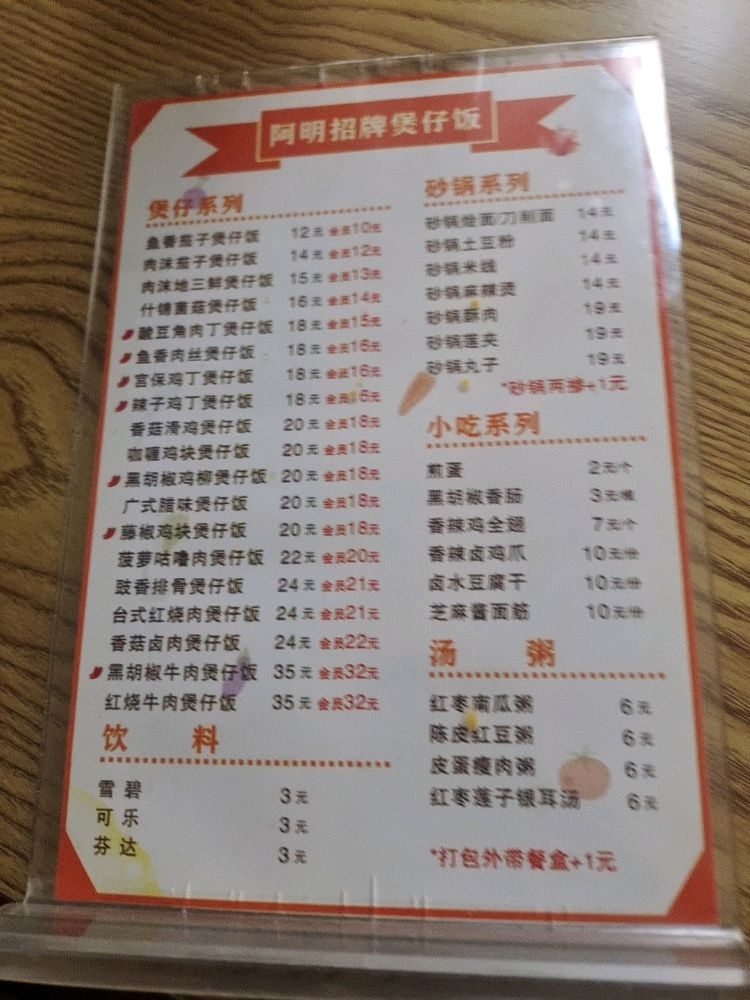 阿明招牌煲仔饭
煲仔系列
鱼香茄子煲仔饭 12元 会员10元
肉沫茄子煲仔饭 14元 会员12元
肉沫地三鲜煲仔饭 15元 会员13元
什锦菌菇煲仔饭 16元 会员14元
酸豆角肉丁煲仔饭 18元 会员15元
鱼香肉丝煲仔饭 18元 会员16元
宫保鸡丁煲仔饭 18元 会员16元
辣子鸡丁煲仔饭 18元 会员16元
香菇滑鸡煲仔饭 20元 会员18元
咖喱鸡块煲仔饭 20元 会员18元
黑胡椒鸡柳煲仔饭 20元 会员18元
广式腊味煲仔饭 20元 会员18元
藤椒鸡块煲仔饭 20元 会员18元
菠萝咕噜肉煲仔饭 22元 会员20元
豉香排骨煲仔饭 24元 会员21元
台式红烧肉煲仔饭 24元 会员21元
香菇卤肉煲仔饭 24元 会员22元
黑胡椒牛肉煲仔饭 35元 会员32元
红烧牛肉煲仔饭 35元 会员32元
饮 料
雪碧 3元
可乐 3元
芬达 3元
砂锅系列
砂锅烩面/刀削面 14元
砂锅土豆粉 14元
砂锅米线 14元
砂锅麻辣烫 14元
砂锅酥肉 19元
砂锅莲夹 19元
砂锅丸子 19元
*砂锅两掺+1元
小吃系列
煎蛋 2元/个
黑胡椒香肠 3元/根
香辣鸡全翅 7元/个
香辣卤鸡爪 10元/份
卤水豆腐干 10元/份
芝麻酱面筋 10元/份
汤 粥
红枣南瓜粥 6元
陈皮红豆粥 6元
皮蛋瘦肉粥 6元
红枣莲子银耳汤 6元
*打包外带餐盒+1元